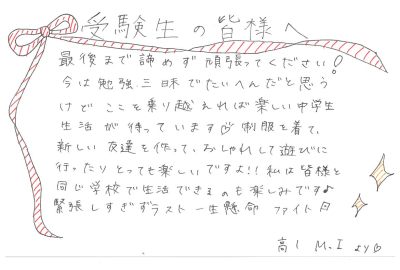 受験生の皆様へ
最後まで諦めず頑張ってください!
今は勉強三昧でたいへんだと思う
けど ここを乗り越えれば楽しい中学生
生活が待っています♡ 制服を着て、
新しい友達を作って、おしゃれして遊びに
行ったりとっても楽しいですよ!! 私は皆様と
同じ学校で生活できるのも楽しみです♪
緊張しすぎずラスト一生懸命 ファイト
高1 M.I より♡